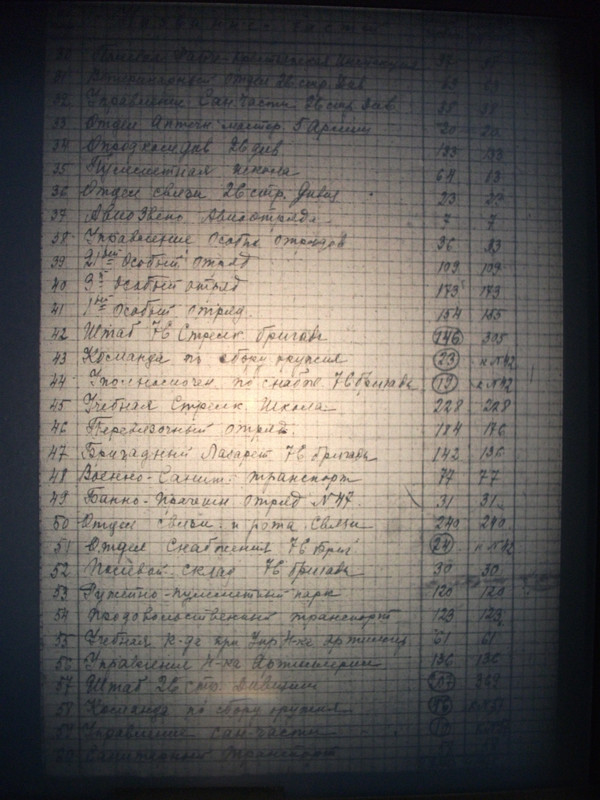 части
31 Ветеринарный Отдел 26 стр. Див 63 63
32 Управление Сан. Части 26 стр. Див 38 38
33 Отдел Аптечн. 5 Армии 20 20
34 Опродкомдив 26 див 133 133
35 Пулеметная школа 64 13
36 Отдел связи 26 стр. Дивиз 23 23
37 Авиазвено Авиаотряда 7 7
38 Управление Особых отрядов 36 33
39 2й Особый отряд 109 109
40 3й Особый отряд 173 173
41 1й Особый отряд 154
42 Штаб 76 Стрелк. Бригады 146 305
43 Команда по сбору оружия 23 к №42
44 Уполномочен. по снабж. 76 Бригады 12 к №42
45 Учебная Стрелк. Школа 228 228
46 Перевязочный отряд 184 176
47 Бригадный Лазарет 76 Бригады 142 136
48 Военно-Санит. транспорт 77 77
49 Банно-Прачечн отряд №47 31 31
50 Отдел связи и рота связи 240 240
51 Отдел Снабжения 76 Бриг 24 к №42
52 Полевой склад 76 Бригады 30 30
53 Ружейно-пулеметный парк 120 120
54 Продовольственный транспорт 123 123
55 Учебная к-да при Упр. Н-ка артиллер 61 61
56 Управления Н-ка Артиллерии 136 136
57 Штаб 26 стр. Дивизии 207 369
58 Команда по сбору оружия
59 Управление сан. части
60 Санитарный Транспорт